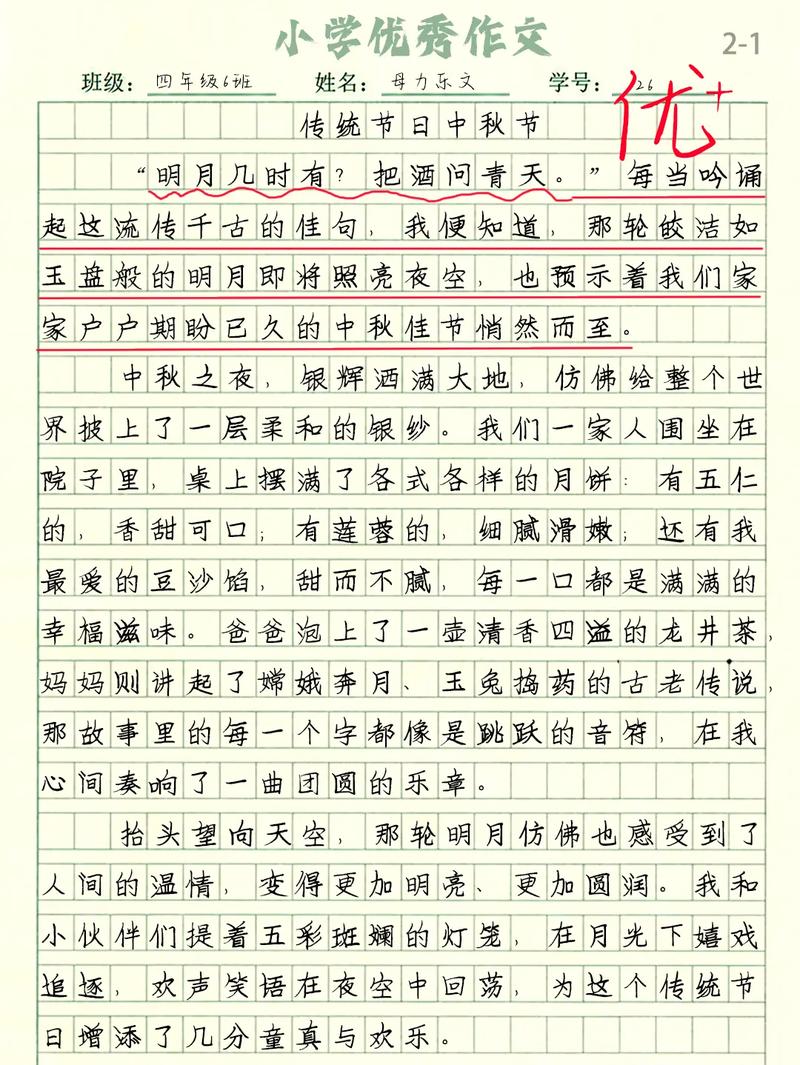 小学优秀作文
2-1
班级：四年级6班 姓名：母力乐文 学号：26
优+
传统节日中秋节
“明月几时有？把酒问青天。”每当吟诵
起这流传千古的佳句，我便知道，那轮皎洁如
玉盘般的明月即将照亮夜空，也预示着我们家
家户户期盼已久的中秋佳节悄然而至。
中秋之夜，银辉洒满大地，仿佛给整个世
界披上了一层柔和的银纱。我们一家人围坐在
院子里，桌上摆满了各式各样的月饼：有五仁
的，香甜可口；有莲蓉的，细腻滑嫩；还有我
最爱的豆沙馅，甜而不腻，每一口都是满满的
幸福滋味。爸爸泡上了一壶清香四溢的龙井茶，
妈妈则讲起了嫦娥奔月、玉兔捣药的古老传说，
那故事里的每一个字都像是跳跃的音符，在我
心间奏响了一曲团圆的乐章。
抬头望向天空，那轮明月仿佛也感受到了
人间的温情，变得更加明亮、更加圆润。我和
小伙伴们提着五彩斑斓的灯笼，在月光下嬉戏
追逐，欢声笑语在夜空中回荡，为这个传统节
日增添了几分童真与欢乐。